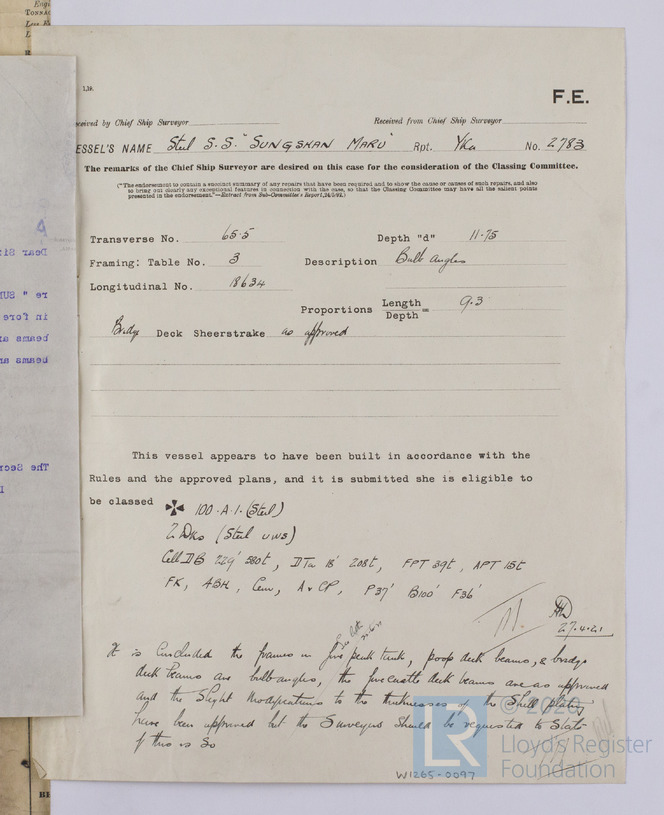 Engi
TONNAG
L
1,19.
F.E.
ceived by Chief Ship Surveyor
Received from Chief Ship Surveyor
ESSEL'S NAME Steel S.S. "SUNGSKAN MARU" Rpt. Yka No. 2783
The remarks of the Chief Ship Surveyor are desired on this case for the consideration of the Classing Committee.
("The endorsement to contain a succinct summary of any repairs that have been required and to show the cause or causes of such repairs, and also
to bring out clearly any exceptional features in connection with the case, so that the Classing Committee may have all the salient points
presented in the endorsement."—Extract from Sub-Committee's Report, 24/5/92.)
Transverse No. 65.5 Depth "d" 11.75
Framing: Table No. 3 Description Bulb angles
Longitudinal No. 18634
Proportions Length
Depth = 9.3
Bridge Deck Sheerstrake as approved
A
Dear Si
re " SU
in fore
beams a
beams a
The Secr
This vessel appears to have been built in accordance with the
Rules and the approved plans, and it is submitted she is eligible to
be classed ✠ 100.A.1. (Steel)
2 Dks (Steel UWS)
Cell DB 229' 580t, DTa 18' 208t, FPT 39t, APT 15t
FK, 4BH, Cem, A&CP, P37' B100' F36'
27.4.21
It is concluded the frames in fore peak tank, poop deck beams, & bridge
deck beams are bulb angles, the forecastle deck beams are as approved
and the slight modifications to the thicknesses of the shell plating
have been approved but the Surveyors should be requested to state
if this is so
© 2020
LR
Lloyd's Register
Foundation
W1265-0097